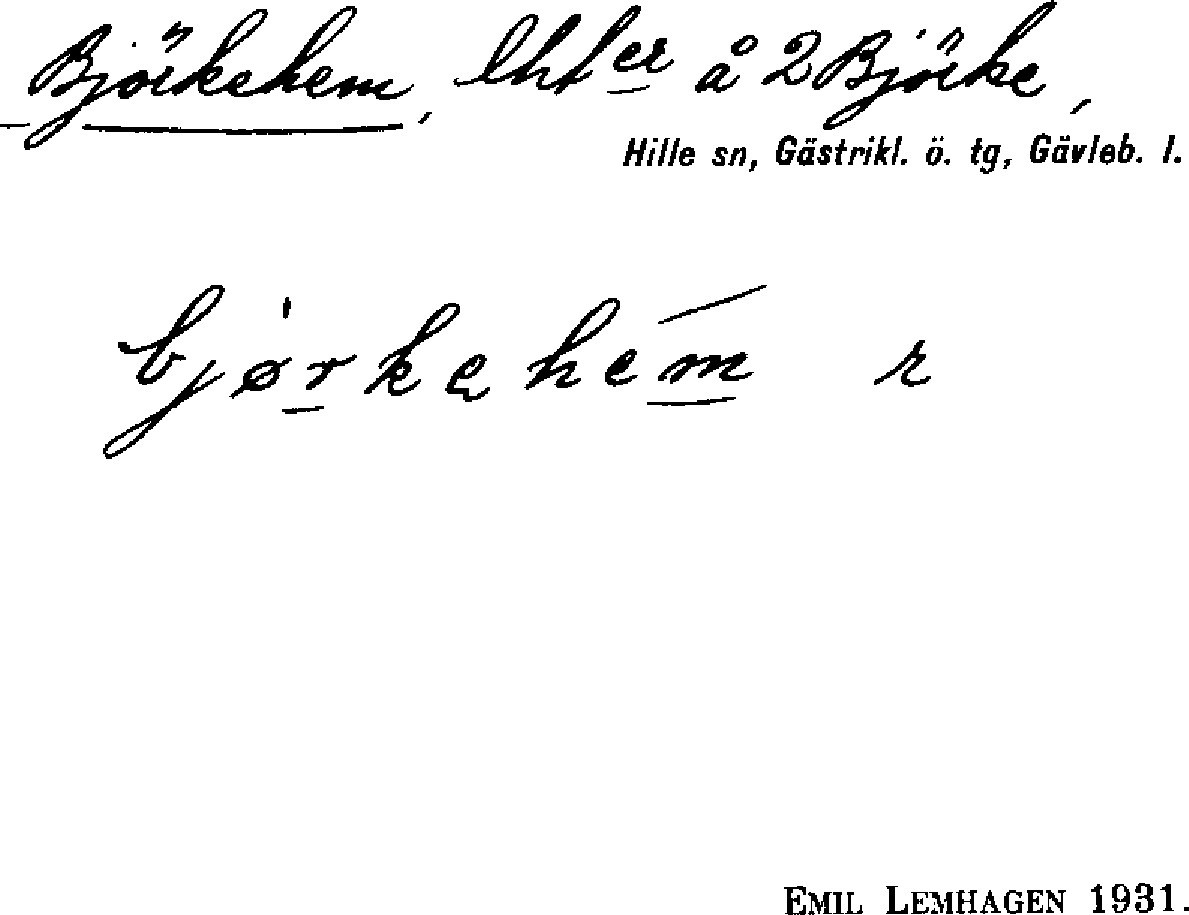 Björkehem, lht er å 2 Björke,
Hille sn, Gästrikl. ö. tg, Gävleb. l.
bjørkehem r
EMIL LEMHAGEN 1931.